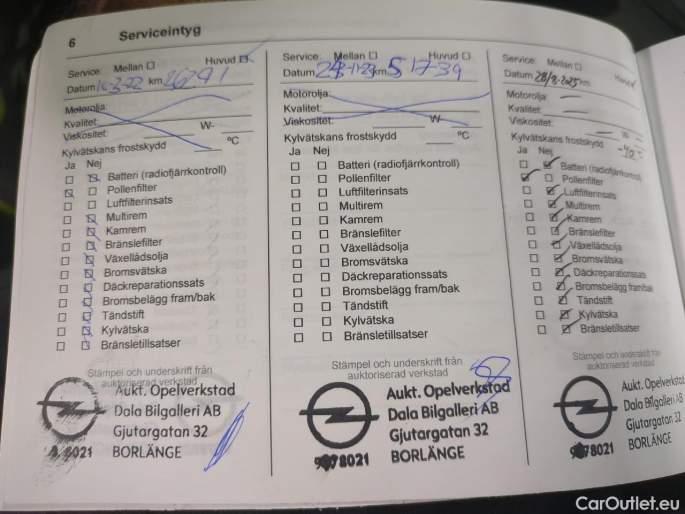 6 Serviceintyg
Service: Mellan ☐ Huvud ☒
Datum 16-3-22 km 26291
Motorolja:
Kvalitet:
Viskositet: W-
Kylvätskans frostskydd °C
Ja Nej
Batteri (radiofjärrkontroll)
Pollenfilter
Luftfilterinsats
Multirem
Kamrem
Bränslefilter
Växellådsolja
Bromsvätska
Däckreparationssats
Bromsbelägg fram/bak
Tändstift
Kylvätska
Bränsletillsatser
Stämpel och underskrift från
auktoriserad verkstad
Aukt. Opelverkstad
Dala Bilgalleri AB
Gjutargatan 32
8021 BORLÄNGE
Service: Mellan ☐ Huvud ☐
Datum km 517-39
Motorolja:
Kvalitet:
Viskositet: W-
Kylvätskans frostskydd °C
Ja Nej
Batteri (radiofjärrkontroll)
Pollenfilter
Luftfilterinsats
Multirem
Kamrem
Bränslefilter
Växellådsolja
Bromsvätska
Däckreparationssats
Bromsbelägg fram/bak
Tändstift
Kylvätska
Bränsletillsatser
Stämpel och underskrift från
auktoriserad verkstad
Aukt. Opelverkstad
Dala Bilgalleri AB
Gjutargatan 32
8021 BORLÄNGE
Service: Mellan ☐ Huvud
Datum 28/2-2025 km
Motorolja:
Kvalitet:
Viskositet: W-
Kylvätskans frostskydd -40°C
Ja Nej
Batteri (radiofjärrkontroll)
Pollenfilter
Luftfilterinsats
Multirem
Kamrem
Bränslefilter
Växellådsolja
Bromsvätska
Däckreparationssats
Bromsbelägg fram/bak
Tändstift
Kylvätska
Bränsletillsatser
Stämpel och underskrift från
auktoriserad verkstad
Aukt. Opelverkstad
Dala Bilgalleri AB
Gjutargatan 32
8021 BORLÄNGE
CarOutlet.eu